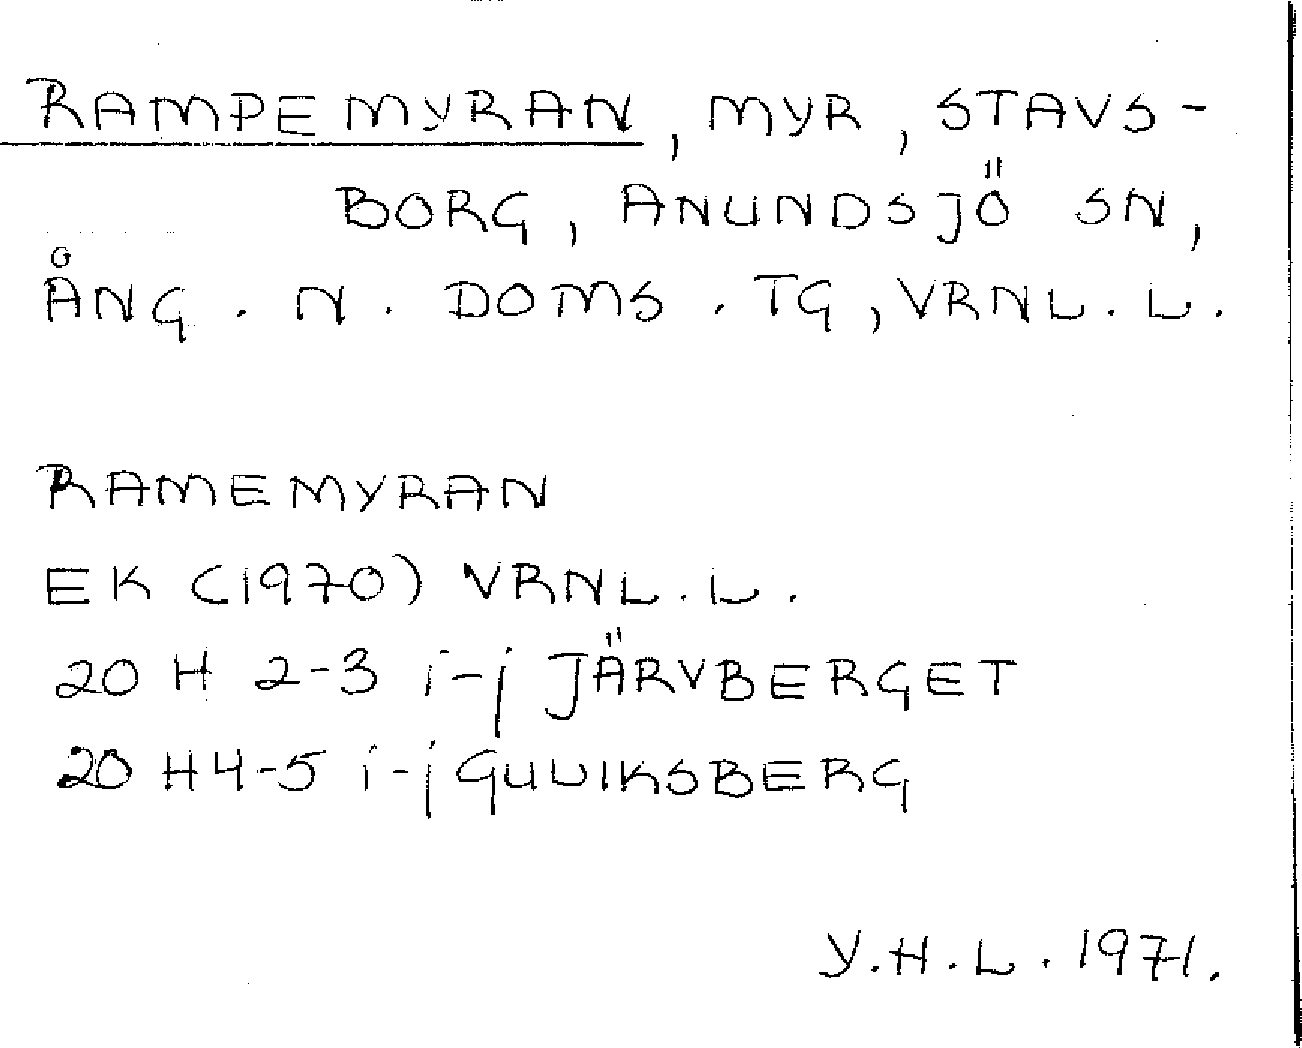 RAMPEMYRAN, MYR, STAVS-
BORG, ANUNDSJÖ SN,
ÅNG. N. DOMS. TG, VRNL. L.
RAMEMYRAN
EK (1970) VRNL. L.
20 H 2-3 i-j JÄRVBERGET
20 H4-5 i-j GULLIKSBERG
Y.H.L. 1971.